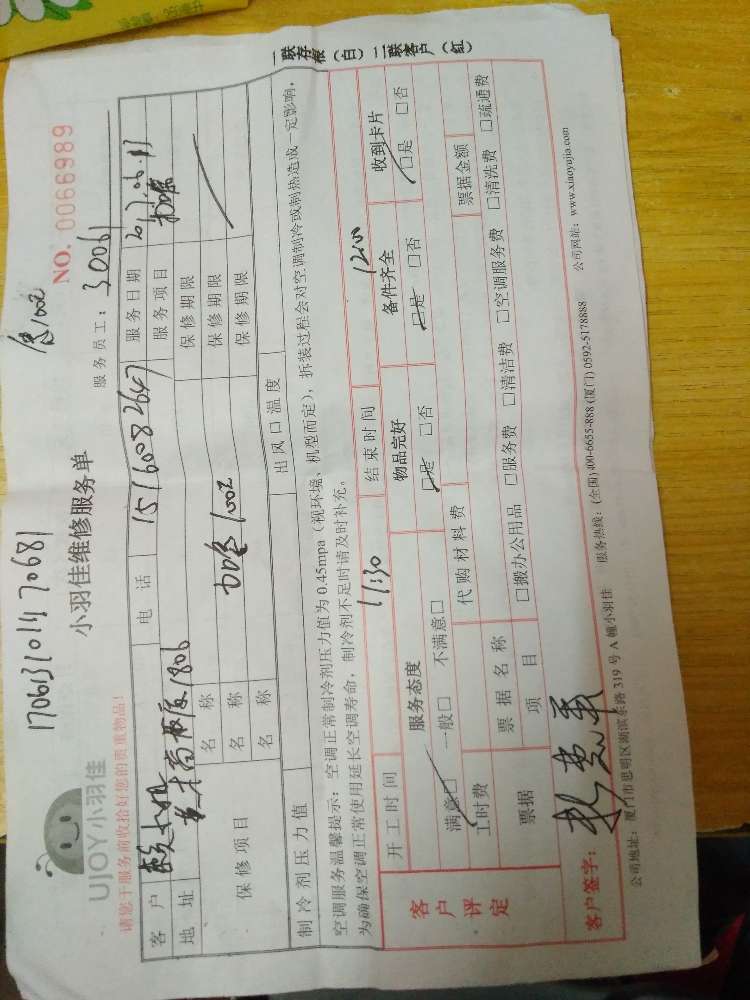 17061310147 0681
UJOY小羽佳
小羽佳维修服务单
NO. 0066989
请您于服务前收拾好您的贵重物品!
服务员工: 3006
客户
电话 15160082647
服务日期
地址
服务项目
保修项目
名称
保修期限
名称 1002
保修期限
名称
保修期限
制冷剂压力值
出风口温度
空调服务温馨提示: 空调正常制冷剂压力值为 0.45mpa (视环境、机型而定), 拆装过程会对空调制冷或制热造成一定影响,
为确保空调正常使用延长空调寿命, 制冷剂不足时请及时补充。
开工时间 11:30 结束时间 1200
客户评定
服务态度
物品完好
备件齐全
收到卡片
满意□ 一般□ 不满意□
□是 □否
□是 □否
□是 □否
工时费
代购材料费
票据金额
票据
票据名称
项目
□搬办公用品 □服务费 □清洁费 □空调服务费 □清洗费 □疏通费
客户签字:
公司地址: 厦门市思明区湖滨东路 319 号 A 幢小羽佳 服务热线: (全国) 400-6655-888 (厦门) 0592-5178888 公司网站: www.xiaoyujia.com
一联存根(白) 二联客户(红)